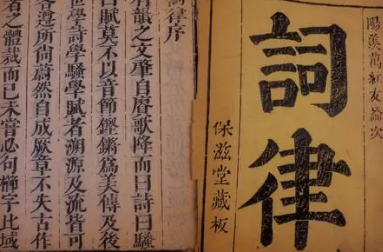 陽羨萬紅友論次
詞律
保滋堂藏板
詞律序
有韻之文肇自賡歌降而曰詩曰騷
曰賦莫不以音節鏗鏘爲美傳及後
世學詩學騷學賦者溯源及流皆可
各遵所尚蔚然自成厥章不失古作
者之體裁而已未嘗必句櫛字比域